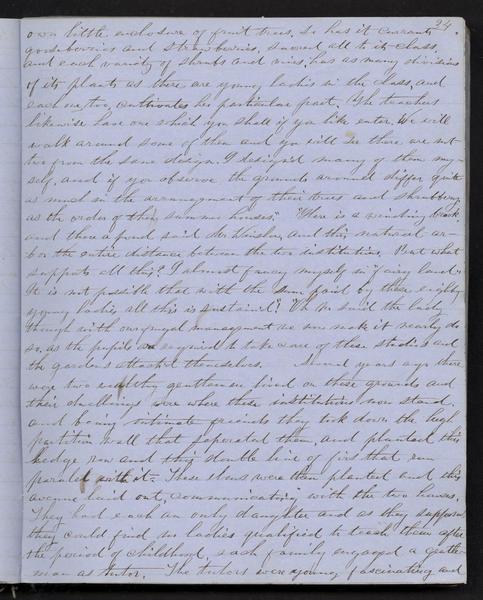 24.
own little enclosure of fruit trees, so has it currants
gooseberries and strawberries, sacred all to its class,
and each variety of shrubs and vines, has as many divisions
of its plants as there are young ladies in the class, and
each one, too, cultivates her particular part. The teachers
likewise have one which you shall if you like enter. We will
walk around some of them and you will see there are not
two from the same design. I designed many of them my-
self, and if you observe the grounds around differ quite
as much in the arrangement of their trees and shrubbery
as the order of their summer houses." "Here is a winding
and there a pond said Mr and this natural ar-
bor the entire distance between the two institutions. But what
supports all this? I almost fancy myself in fairy land.
It is not possible that with the sum paid by these eighty
young ladies all this is sustained?" "Oh no said the lady
though with our frugal management we now make it nearly do
so, as the pupils are required to take care of these studies and
the gardens attach'd themselves. Several years ago there
were two wealthy gentlemen lived on these grounds and
their dwellings were where these institutions now stand,
and being intimate friends they took down the high
partition wall that seperated them, and planted this
hedge row and this double line of firs that run
paralel with it. These elms were then planted and this
avenue laid out, communicating with the two houses.
They had each an only daughter and as they supposed
they could find no ladies qualified to teach them after
the period of childhood, each family engaged a gentle-
man as tutor. The tutors were young fascinating and